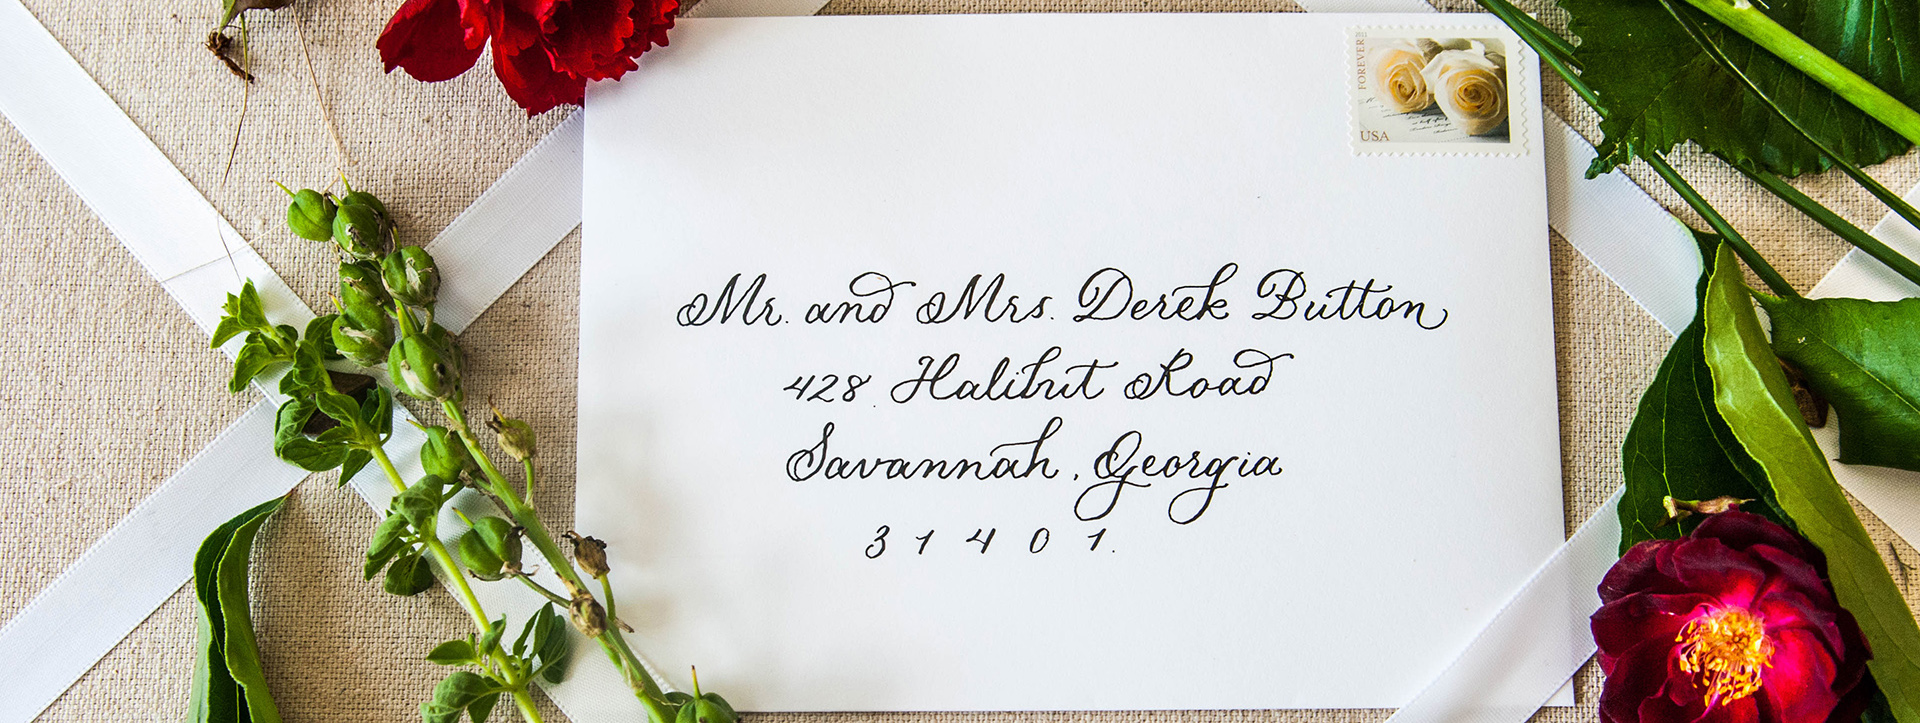 FOREVER
USA
Mr. and Mrs. Derek Button
428 Halibut Road
Savannah, Georgia
31401.